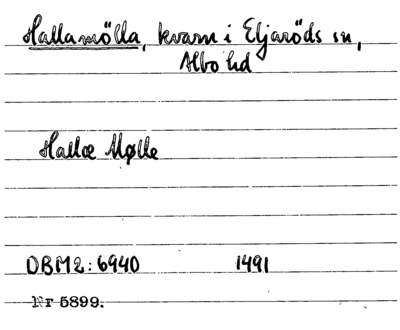 Hallamölla, kvarn i Eljaröds sn,
Albo hd
Hallæ Mølle
DBM2:6940 1491
Nr 5899.